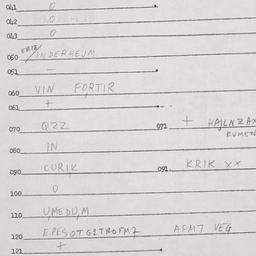 041 0
042 0
043 0
050 ERIZ/INDERHEJM
051 —
060 VIN FORTIR
061 +
070 QZZ 071 + HAJLNZAX
KUMEN
080 IN
090 CURIK 091 KRIK XX
100 0
110 UMEDU,M
120 EPESOTG2TROFM7 AFMT VEG
121 +